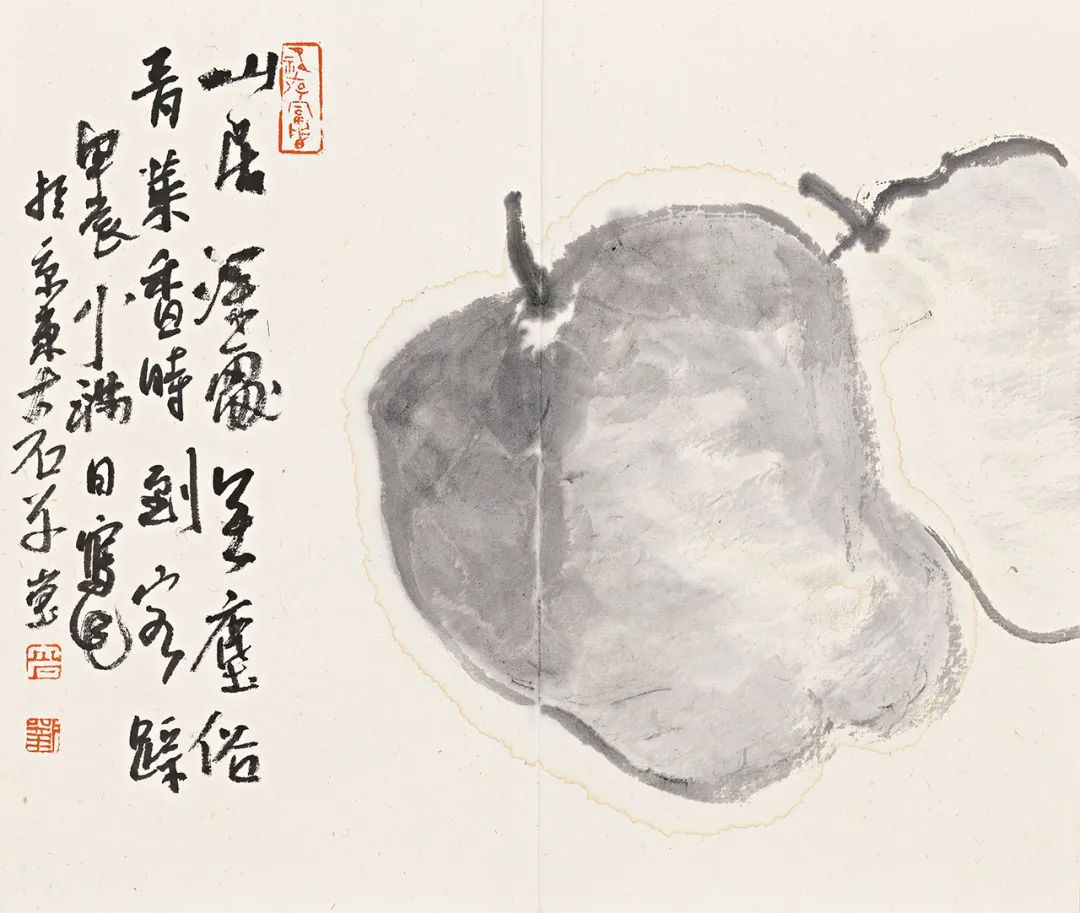 山居深處無塵俗
青葉香時到客踪
甲辰小滿日寫
於京東大石草堂